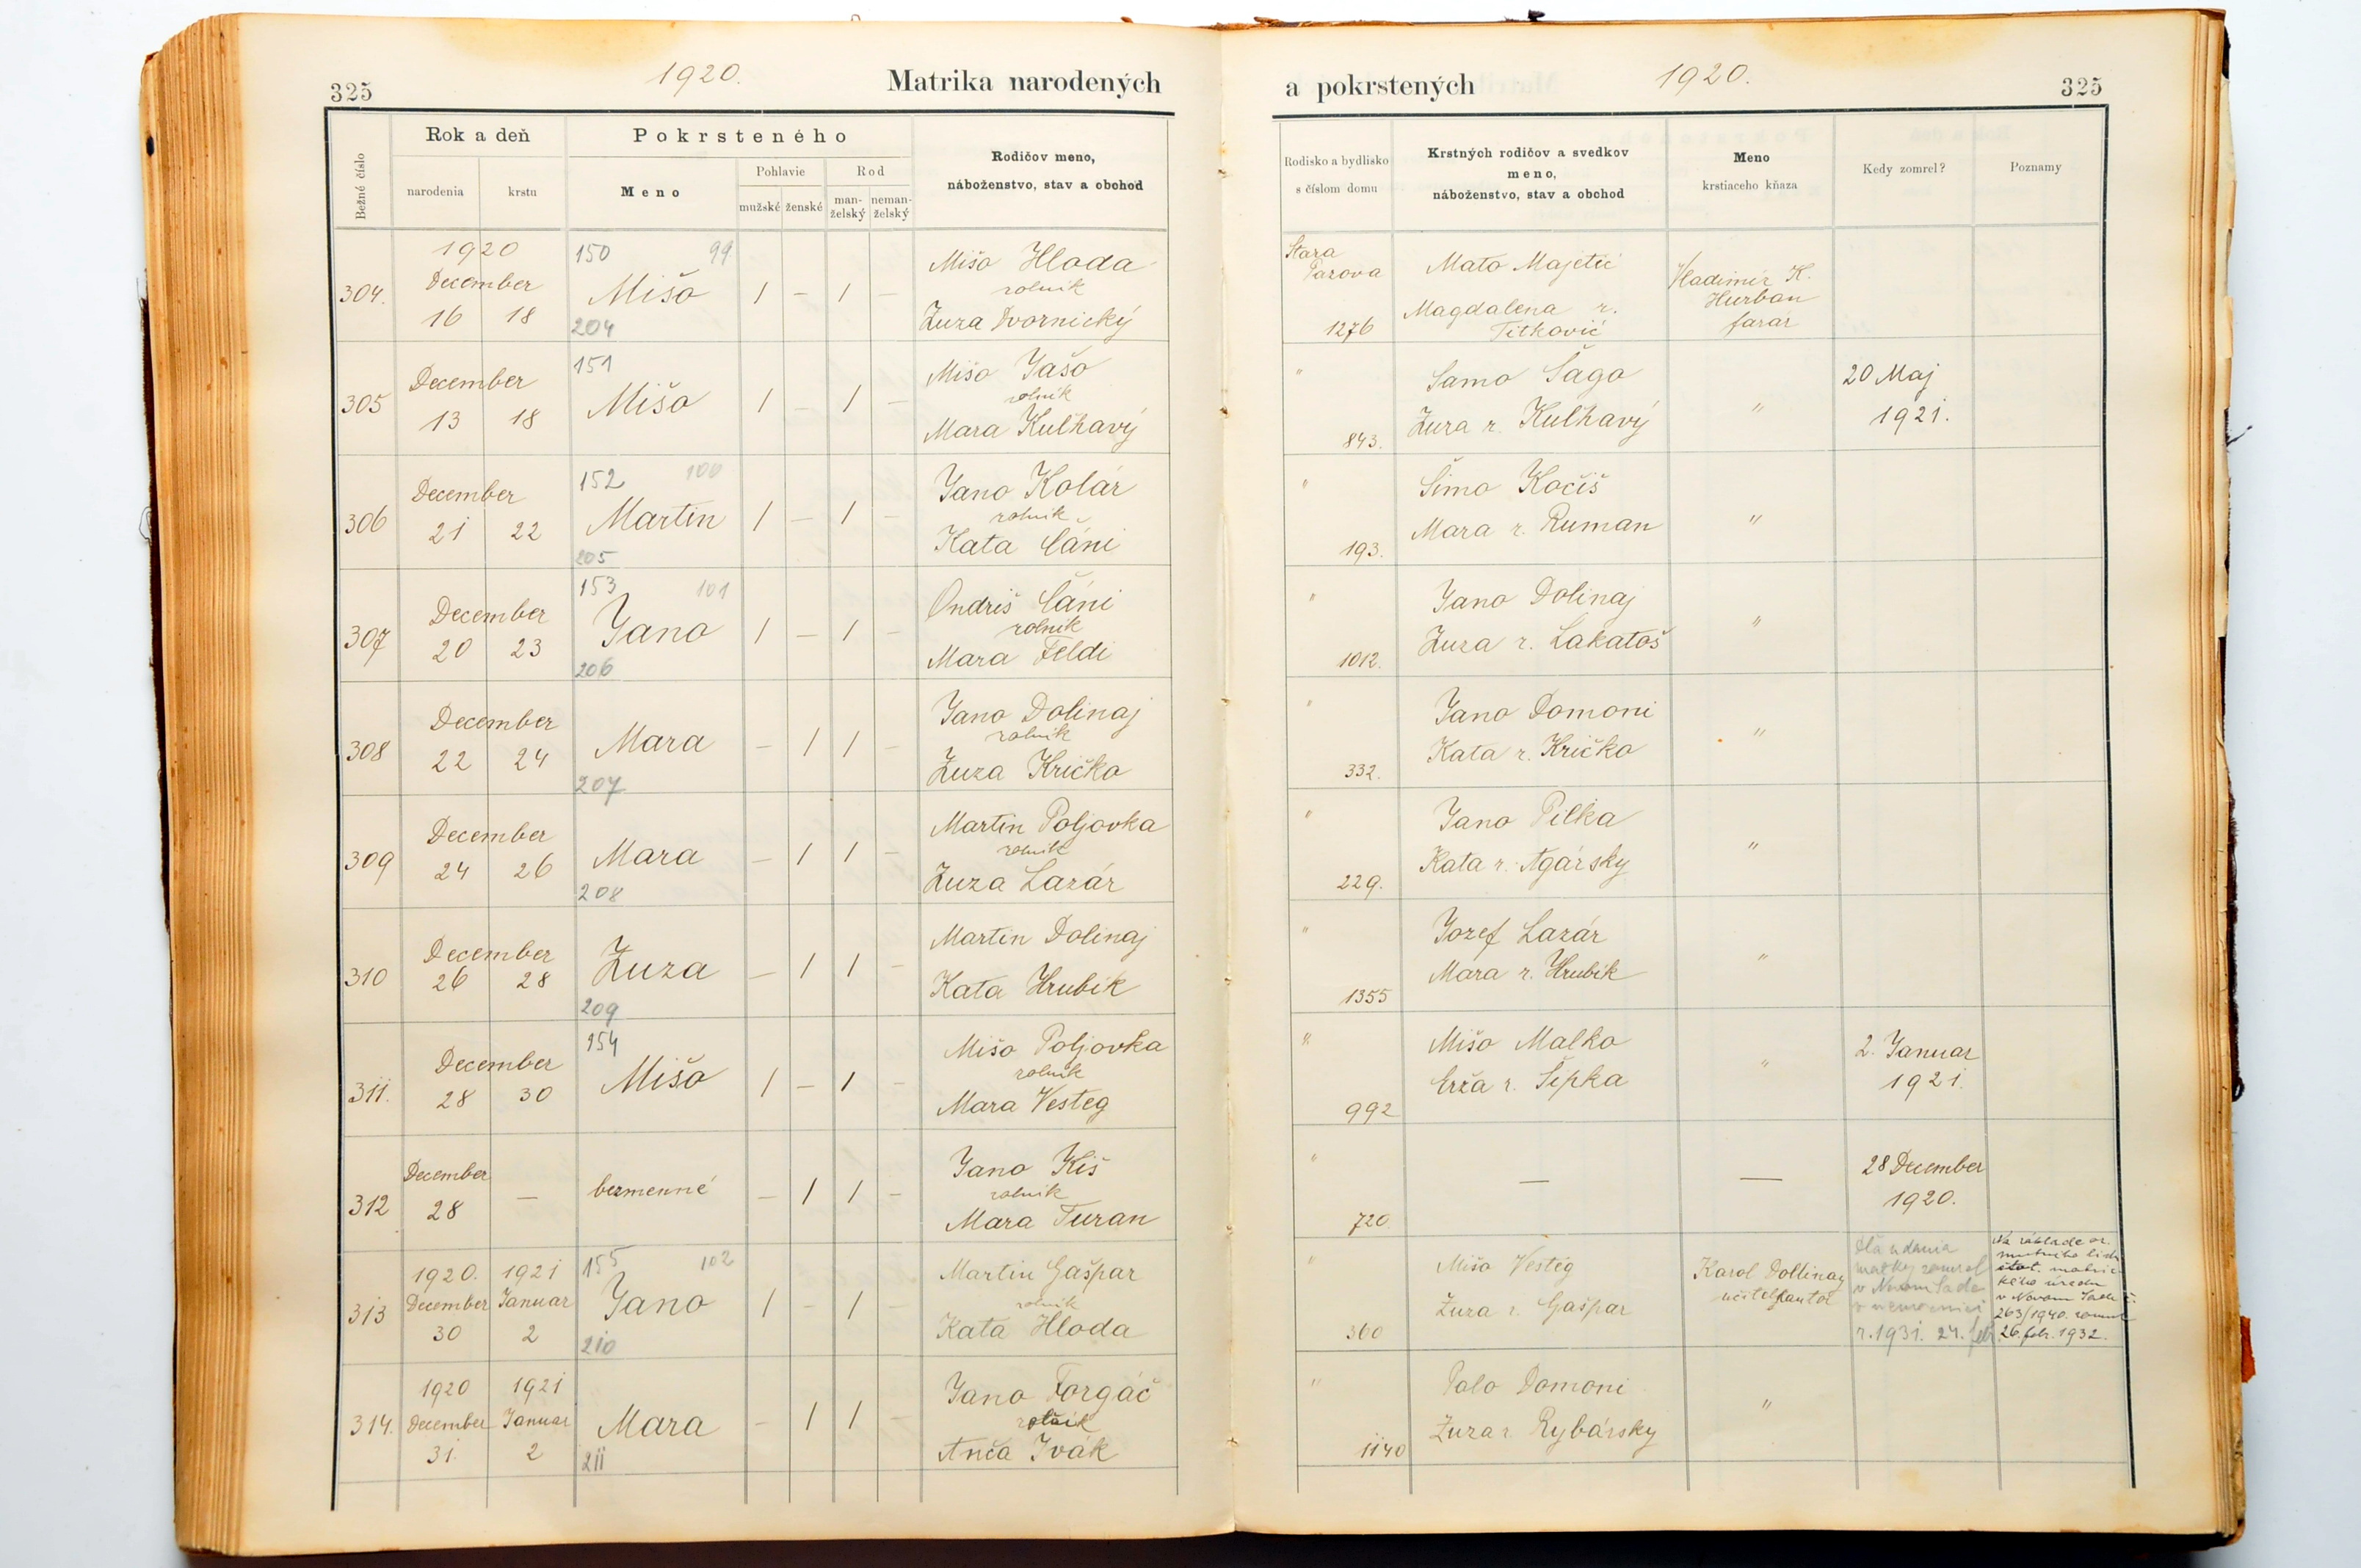 325
1920.
Matrika narodených
Bežné číslo
Rok a deň
narodenia
krstu
Pokrsteného
Meno
Pohlavie
mužské
ženské
Rod
man-
želský
neman-
želský
Rodičov meno,
náboženstvo, stav a obchod
304.
1920
December
16 18
150 99
Mišo
204
1 – 1 –
Mišo Hloda
rolník
Zuza Dvornický
305
December
13 18
151
Mišo
1 – 1 –
Mišo Jašo
rolník
Mara Kulhavý
306
December
21 22
152 100
Martin
205
1 – 1 –
Jano Kolár
rolník
Kata Čáni
307
December
20 23
153 101
Jano
206
1 – 1 –
Ondriš Čáni
rolník
Mara Feldi
308
December
22 24
Mara
207
– 1 1 –
Jano Dolinaj
rolník
Zuza Kričko
309
December
24 26
Mara
208
– 1 1 –
Martin Poljovka
rolník
Zuza Lazár
310
December
26 28
Zuza
209
– 1 1 –
Martin Dolinaj
Kata Hrubík
311.
December
28 30
154
Mišo
1 – 1 –
Mišo Poljovka
rolník
Mara Vesteg
312
December
28 —
bezmenné
– 1 1 –
Jano Kiš
rolník
Mara Turan
313
1920. 1921
December Januar
30 2
155 102
Jano
210
1 – 1 –
Martin Gašpar
rolník
Kata Hloda
314.
1920 1921
December Januar
31. 2
Mara
211
– 1 1 –
Jano Forgáč
rolník
Anča Ivák
a pokrstených
1920.
325
Rodisko a bydlisko
s číslom domu
Krstných rodičov a svedkov
meno,
náboženstvo, stav a obchod
Meno
krstiaceho kňaza
Kedy zomrel?
Poznamy
Stara
Pazova
1276
Mato Majetić
Magdalena r.
Titković
Vladimír K.
Hurban
farár
"
843.
Samo Šago
Zuza r. Kulhavý
"
20 Maj
1921.
"
193.
Šimo Kočiš
Mara r. Ruman
"
"
1012.
Jano Dolinaj
Zuza r. Lakatoš
"
"
332.
Jano Domoni
Kata r. Kričko
"
"
229.
Jano Pilka
Kata r. Agársky
"
"
1355
Jozef Lazár
Mara r. Hrubík
"
"
992
Mišo Malko
Erža r. Šipka
"
2. Januar
1921.
"
720
—
—
28 December
1920.
"
360
Mišo Vesteg
Zuza r. Gašpar
Karol Dollinay
učitel kantor
Dľa udania
matky zomrel
v Novom Sade
v nemocnici
r. 1931. 24. feb
Na základe
štát.
úradu
v Novom Sade č.
263/1940.
26. febr. 1932.
"
1140
Palo Domoni
Zuza r. Rybársky
"